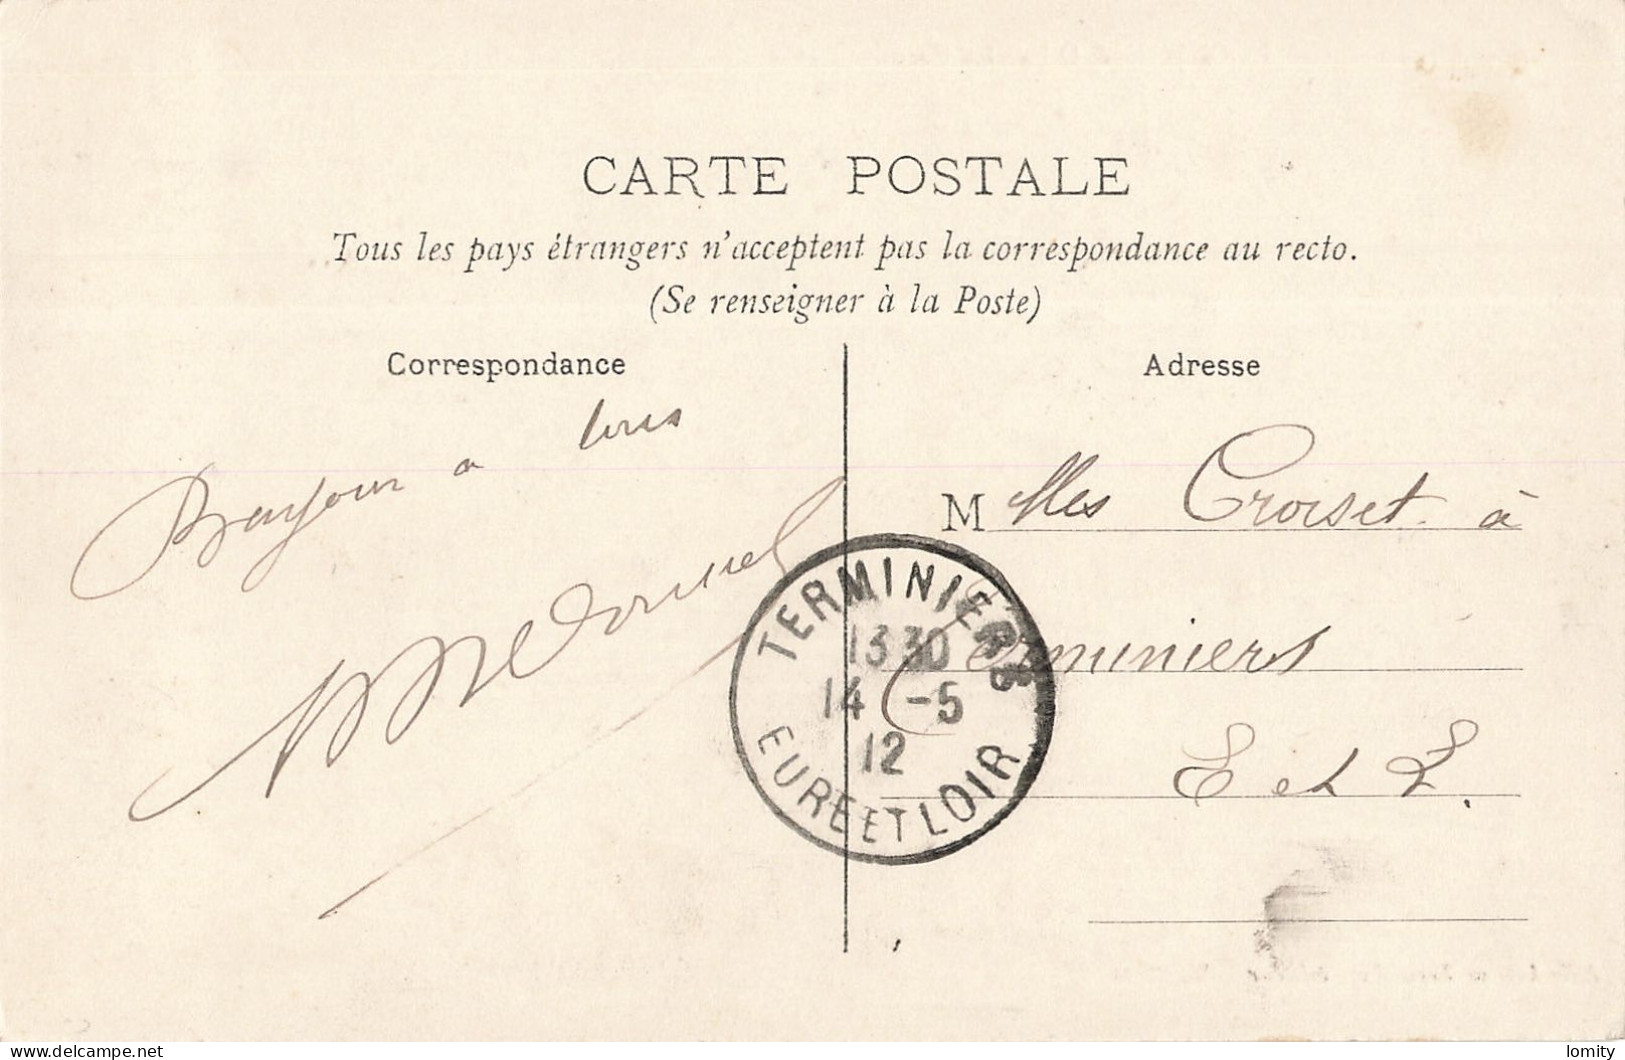 CARTE POSTALE
Tous les pays étrangers n'acceptent pas la correspondance au recto.
(Se renseigner à la Poste)
Correspondance
Adresse
Bonjour a tous
M elles Croiset à
Terminiers
E et L.
TERMINIERS
1330
14 -5
12
EURE ET LOIR
delcampe.net
lomity